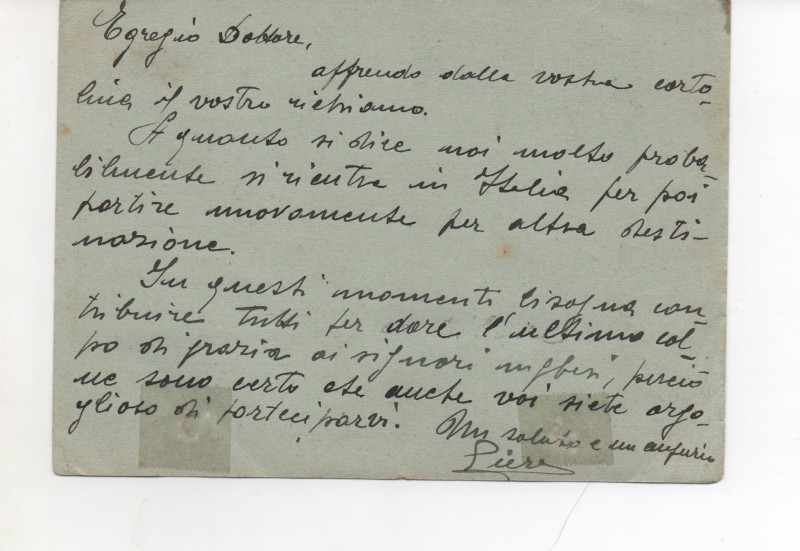 Egregio Dottore,
affrendo dalla vostra carto-
lina il vostro richiamo.
A quanto si dice noi molto proba-
bilmente si rientra in Italia per poi
partire nuovamente per altra desti-
nazione.
In questi momenti bisogna con-
tribuire tutti per dare l'ultimo col-
po di grazia ai signori inglesi, perciò
ne sono certo che anche voi siete orgo-
glioso di parteciparvi. Un saluto e un augurio
Piero